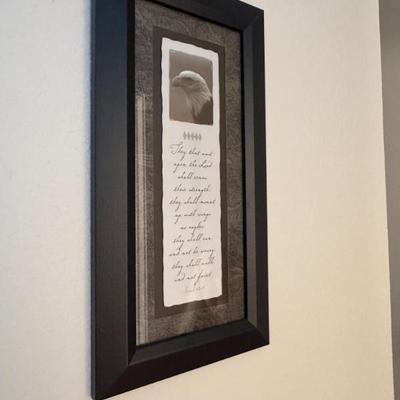 They that wait
upon the Lord
shall renew
their strength
they shall mount
up with wings
as eagles
they shall run
and not be weary
they shall walk
and not faint